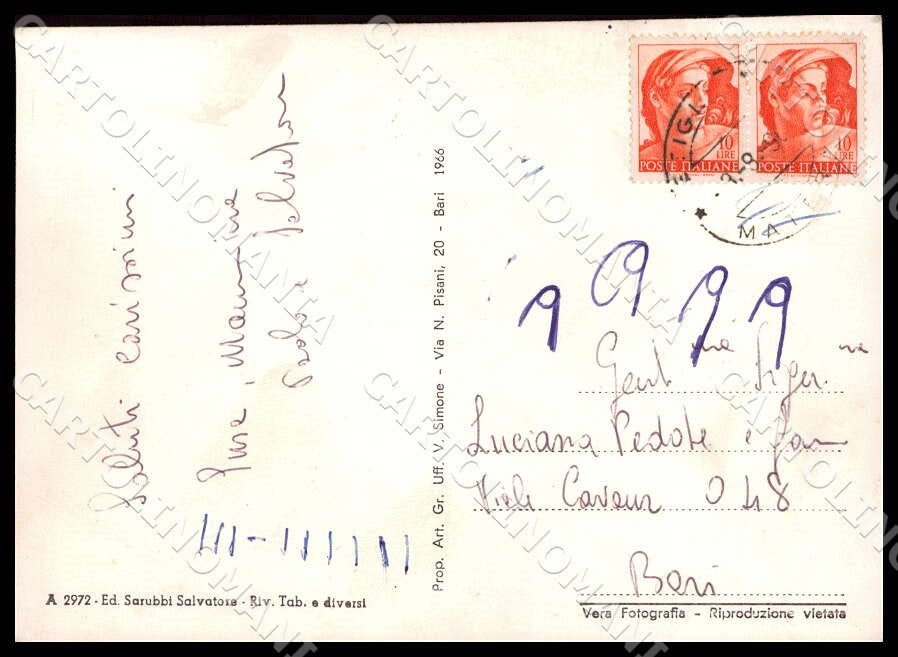 Saluti carissimi
Pina, Mariolina
Paolo e Salvatore
A 2972 - Ed. Sarubbi Salvatore - Riv. Tab. e diversi
Prop. Art. Gr. Uff. V. Simone - Via N. Pisani, 20 - Bari 1966
10
LIRE
POSTE ITALIANE
10
LIRE
POSTE ITALIANE
MA
1979
Gent.ma Sig.na
Luciana Pedote e fam
Viale Cavour 048
Bari
Vera Fotografia - Riproduzione vietata
CARTOLINOMANIA